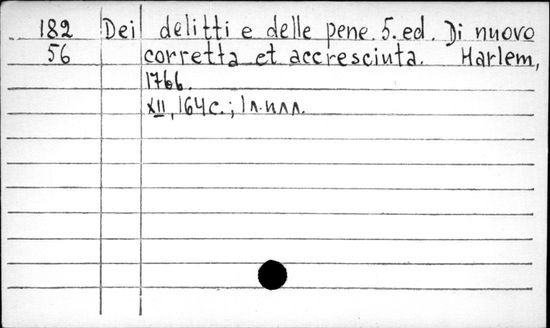 182 Dei delitti e delle pene. 5. ed. Di nuovo
56 corretta et accresciuta. Harlem,
1766.
XII, 164 c.; 1 л. илл.